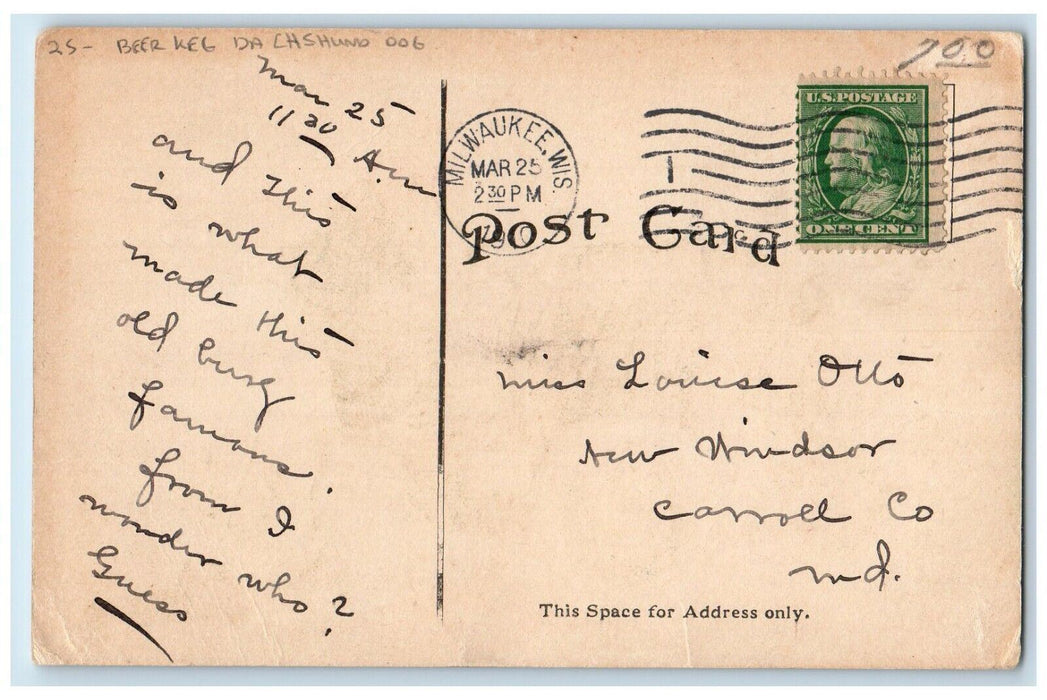 25- BEER KEG DACHSHUND DOG
7 00
Mar 25
11 30 A.m
and This
is what
made this
old burg
famous.
from I
wonder who?
Guess
MILWAUKEE, WIS.
MAR 25
2 30 PM
1
U.S. POSTAGE
ONE CENT
Post Card
Miss Louise Otto
New Windsor
Carroll Co
Md.
This Space for Address only.